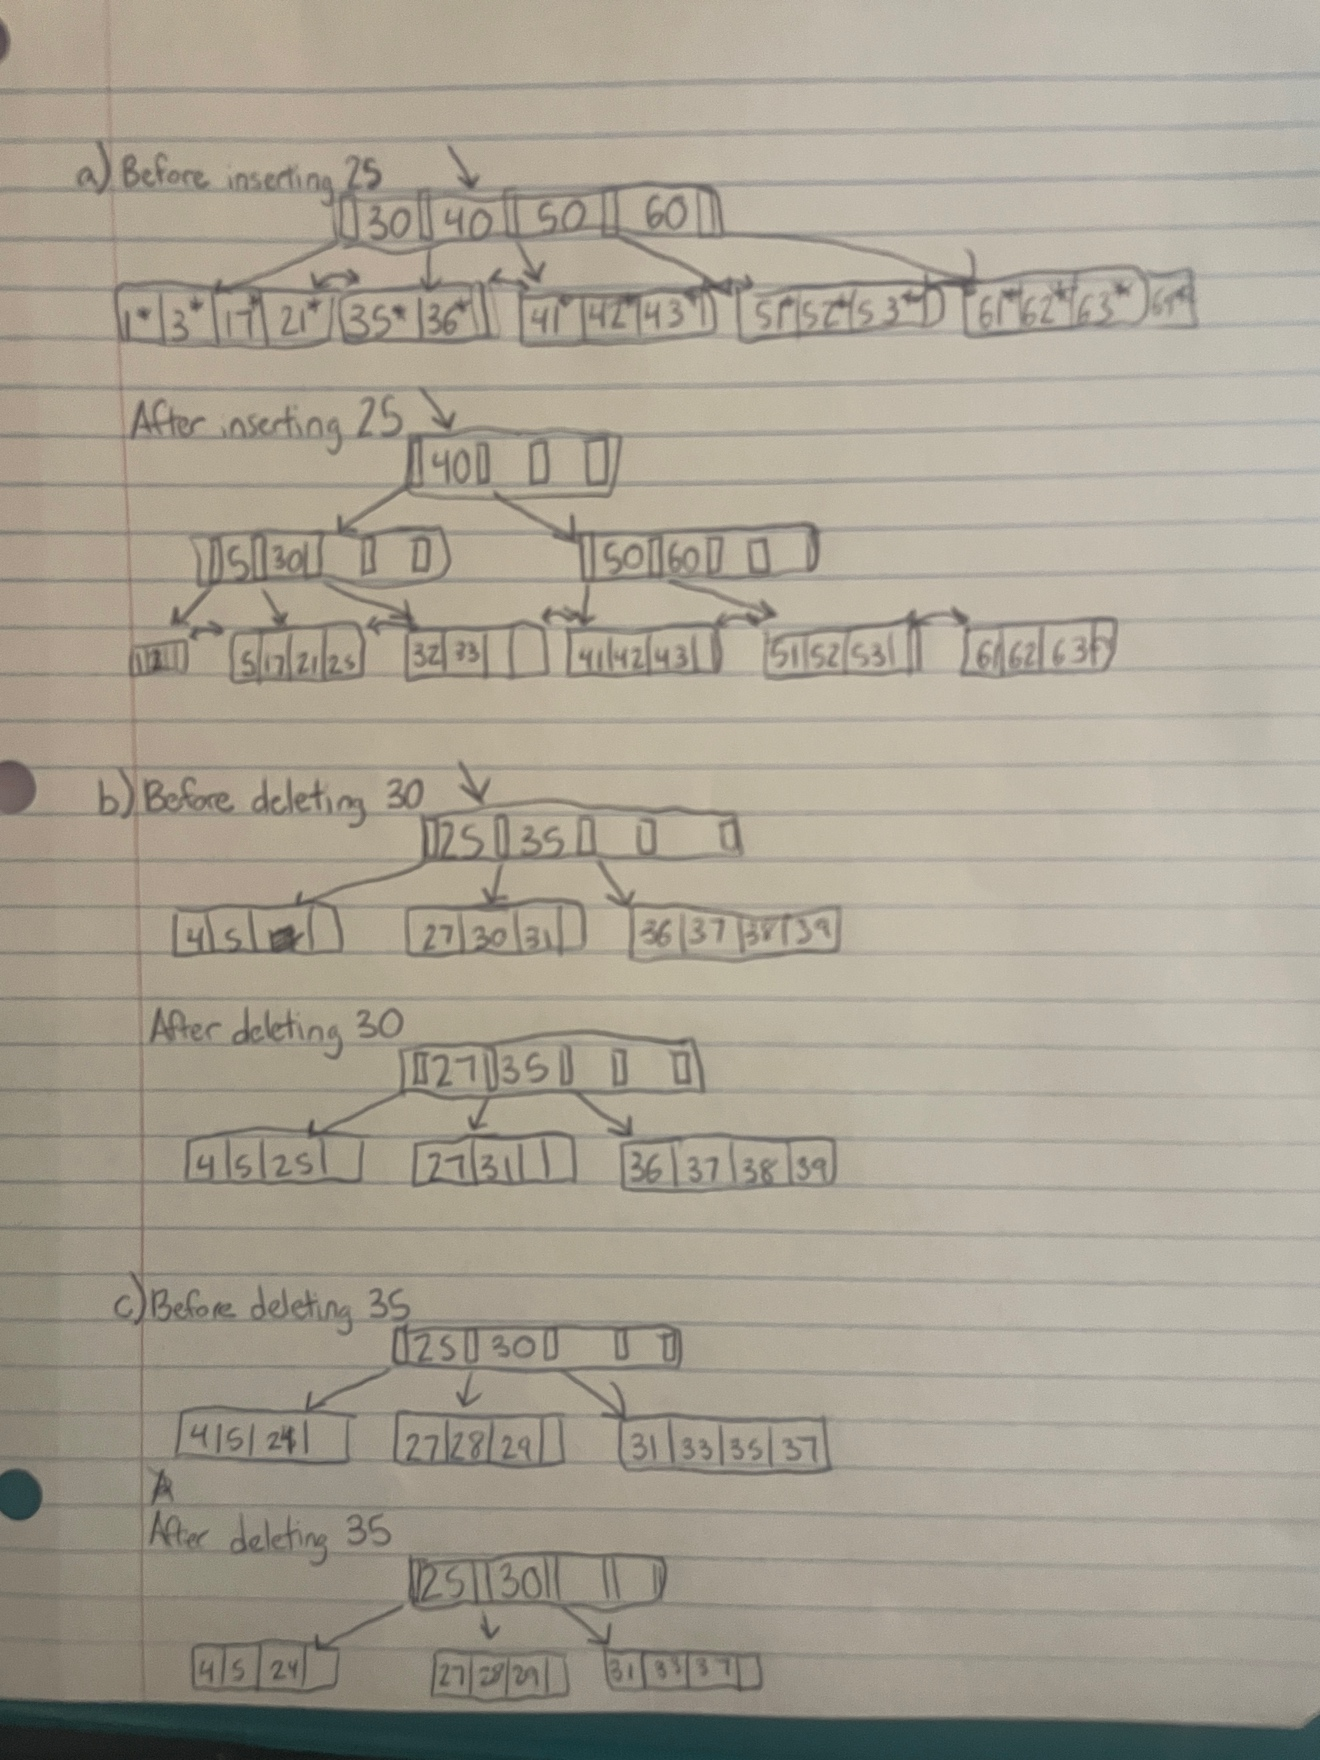 a) Before inserting 25
30 40 50 60
1* 3* 17* 21* 35* 36* 41* 42* 43* 51* 52* 53* 61* 62* 63*
After inserting 25
40
5 30 50 60
5 17 21 25 32 33 41 42 43 51 52 53 61 62 63
b) Before deleting 30
25 35
4 5 27 30 31 36 37 38 39
After deleting 30
27 35
4 5 25 27 31 36 37 38 39
c) Before deleting 35
25 30
4 5 24 27 28 29 31 33 35 37
After deleting 35
25 30
4 5 24 27 28 29 31 33 37